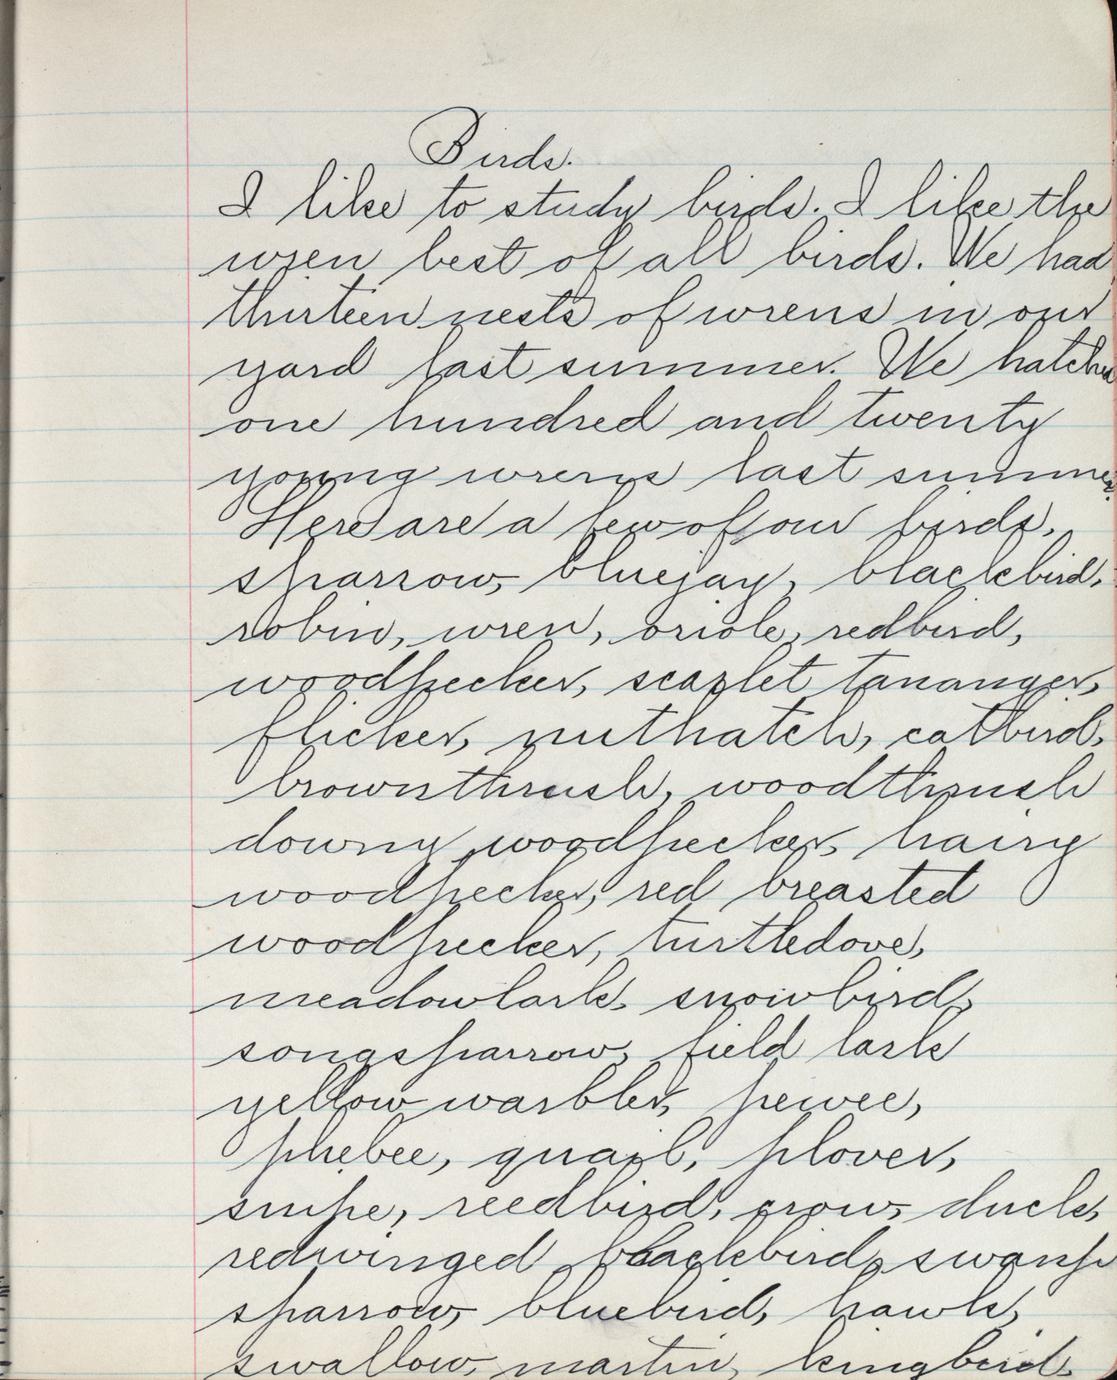 Birds.
I like to study birds. I like the
wren best of all birds. We had
thirteen nests of wrens in our
yard last summer. We hatched
one hundred and twenty
young wrens last summer
Here are a few of our birds,
sparrow, bluejay, blackbird,
robin, wren, oriole, redbird,
woodpecker, scarlet tananger,
flicker, nuthatch, catbird,
brownthrush, woodthrush
downy woodpecker, hairy
woodpecker, red breasted
woodpecker, turtledove,
meadowlark, snowbird,
songsparrow, field lark
yellow warbler, pewee,
phebee, quail, plover,
snipe, reedbird, crow, duck,
redwinged blackbird, swamp
sparrow, bluebird, hawk,
swallow, martin, kingbird,